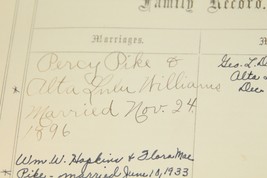 Family Record.
Marriages.
Percy Pike &
Alta Williams
Married Nov. 24
1896
Geo. L. D
Alta
Dec
Wm W. Hopkins & Flora Mae
Pike - married June 10, 1933